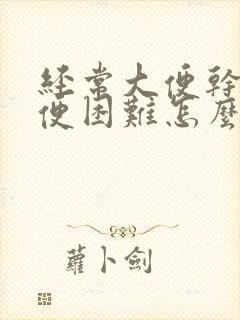 經常大便幹
便困難怎麼
蘿卜劍